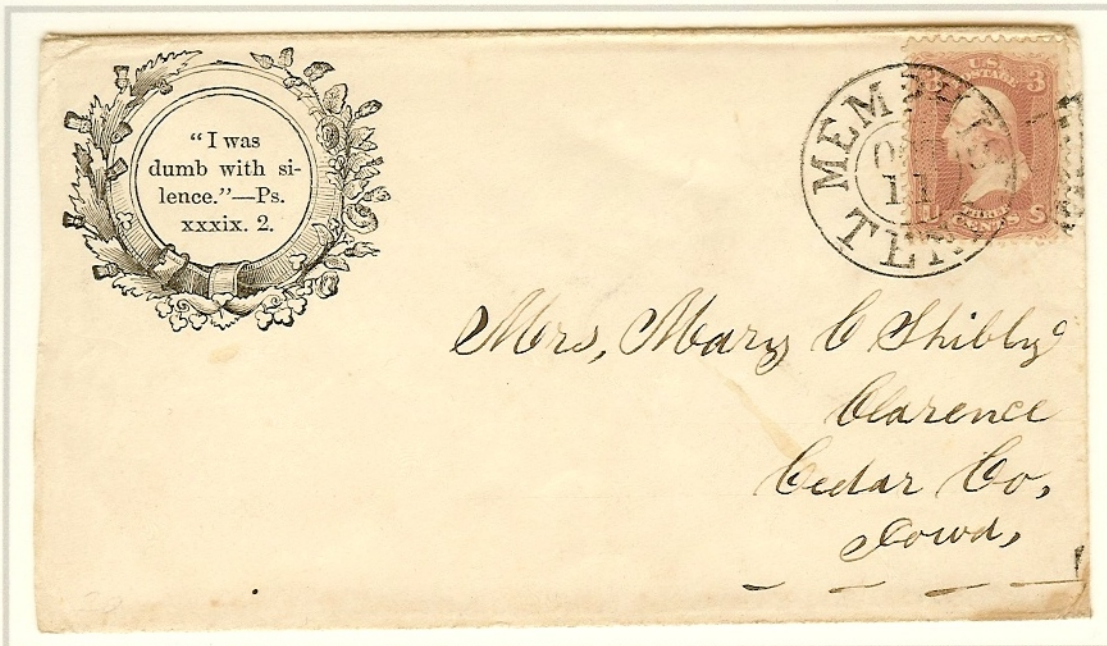 “I was
dumb with si-
lence.”—Ps.
xxxix. 2.
MEMPHIS
OCT
11
TEN.
U.S.
POSTAGE
3 3
U S
THREE
CENTS
Mrs, Mary C Shibly
Clarence
Cedar Co,
Iowa,